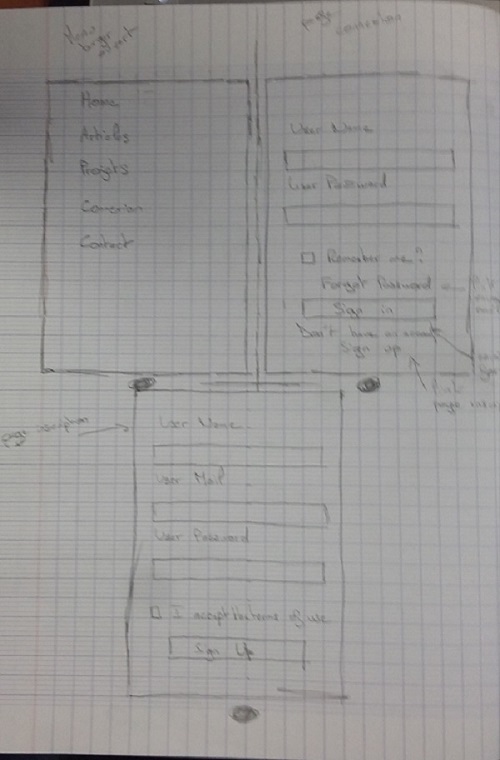 Menu
page conexion
Home
Articles
Projets
Conexion
Contact
User Name
User Password
Remember me?
Forgot Password
Sign in
Don't have an account
Sign up
page inscription
User Name
User Mail
User Password
I accept the terms of use
Sign Up